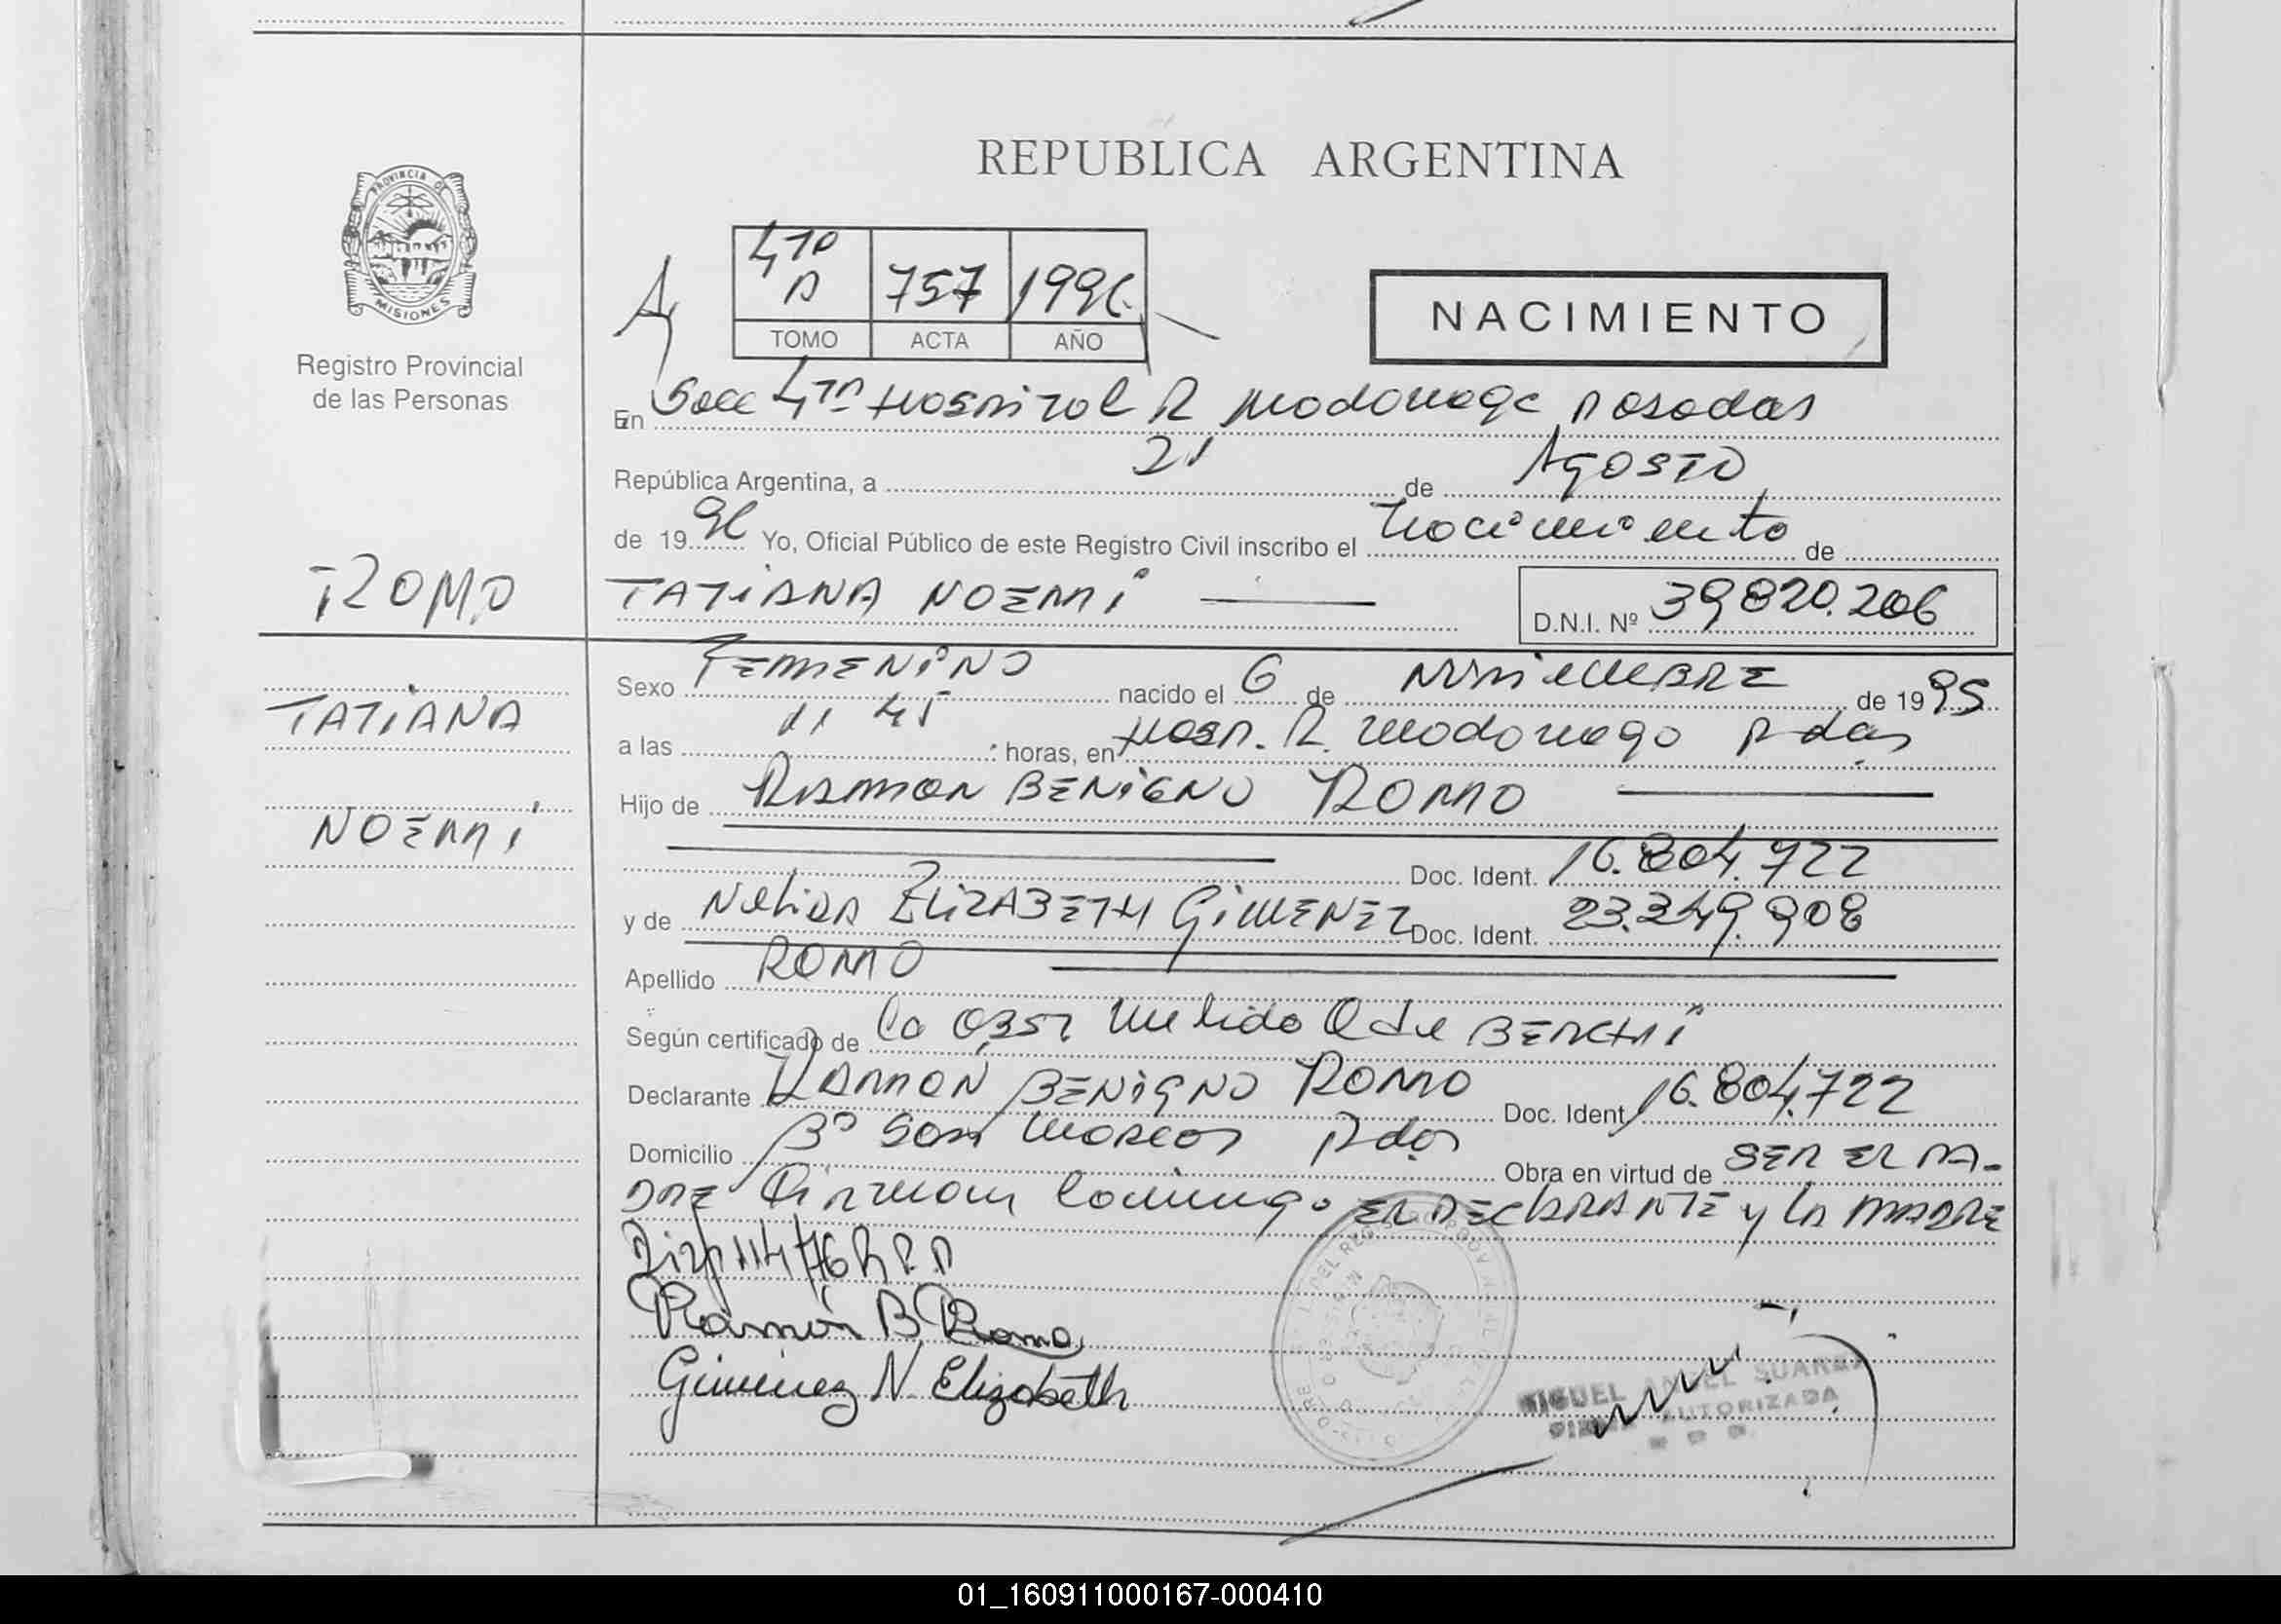 REPUBLICA ARGENTINA
PROVINCIA DE
MISIONES
Registro Provincial
de las Personas
4TA A 757 1996
TOMO ACTA AÑO
NACIMIENTO
En Secc 4TA Hospital R Madariaga Posadas
República Argentina, a 21 de Agosto
de 1996 Yo, Oficial Público de este Registro Civil inscribo el Nacimiento de
ROMO
TATIANA NOEMI
D.N.I. Nº 39820.206
Sexo FEMENINO nacido el 6 de NOVIEMBRE de 1995
TATIANA
a las 11 45 horas, en Hosp. R. Madariaga Pdas
Hijo de RAMON BENIGNO ROMO
NOEMI
Doc. Ident. 16.804.722
y de Nelida ELIZABETH GIMENEZ Doc. Ident. 23.349.908
Apellido ROMO
Según certificado de la Obst Nelida Q de
Declarante RAMON BENIGNO ROMO Doc. Ident 16.804.722
Domicilio Bº San Marcos Pdas Obra en virtud de SER EL PA-
DRE Firman Conmigo EL DECLARANTE y LA MADRE
Disp 114/76 R.P.P
Ramón B. Romo
Gimenez N. Elizabeth
MIGUEL ANGEL SUAREZ
FIRMA AUTORIZADA
01_160911000167-000410